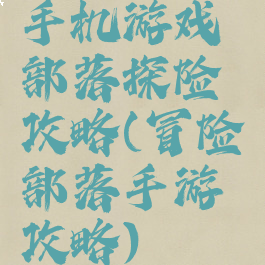 手机游戏
部落探险
攻略(冒险
部落手游
攻略)